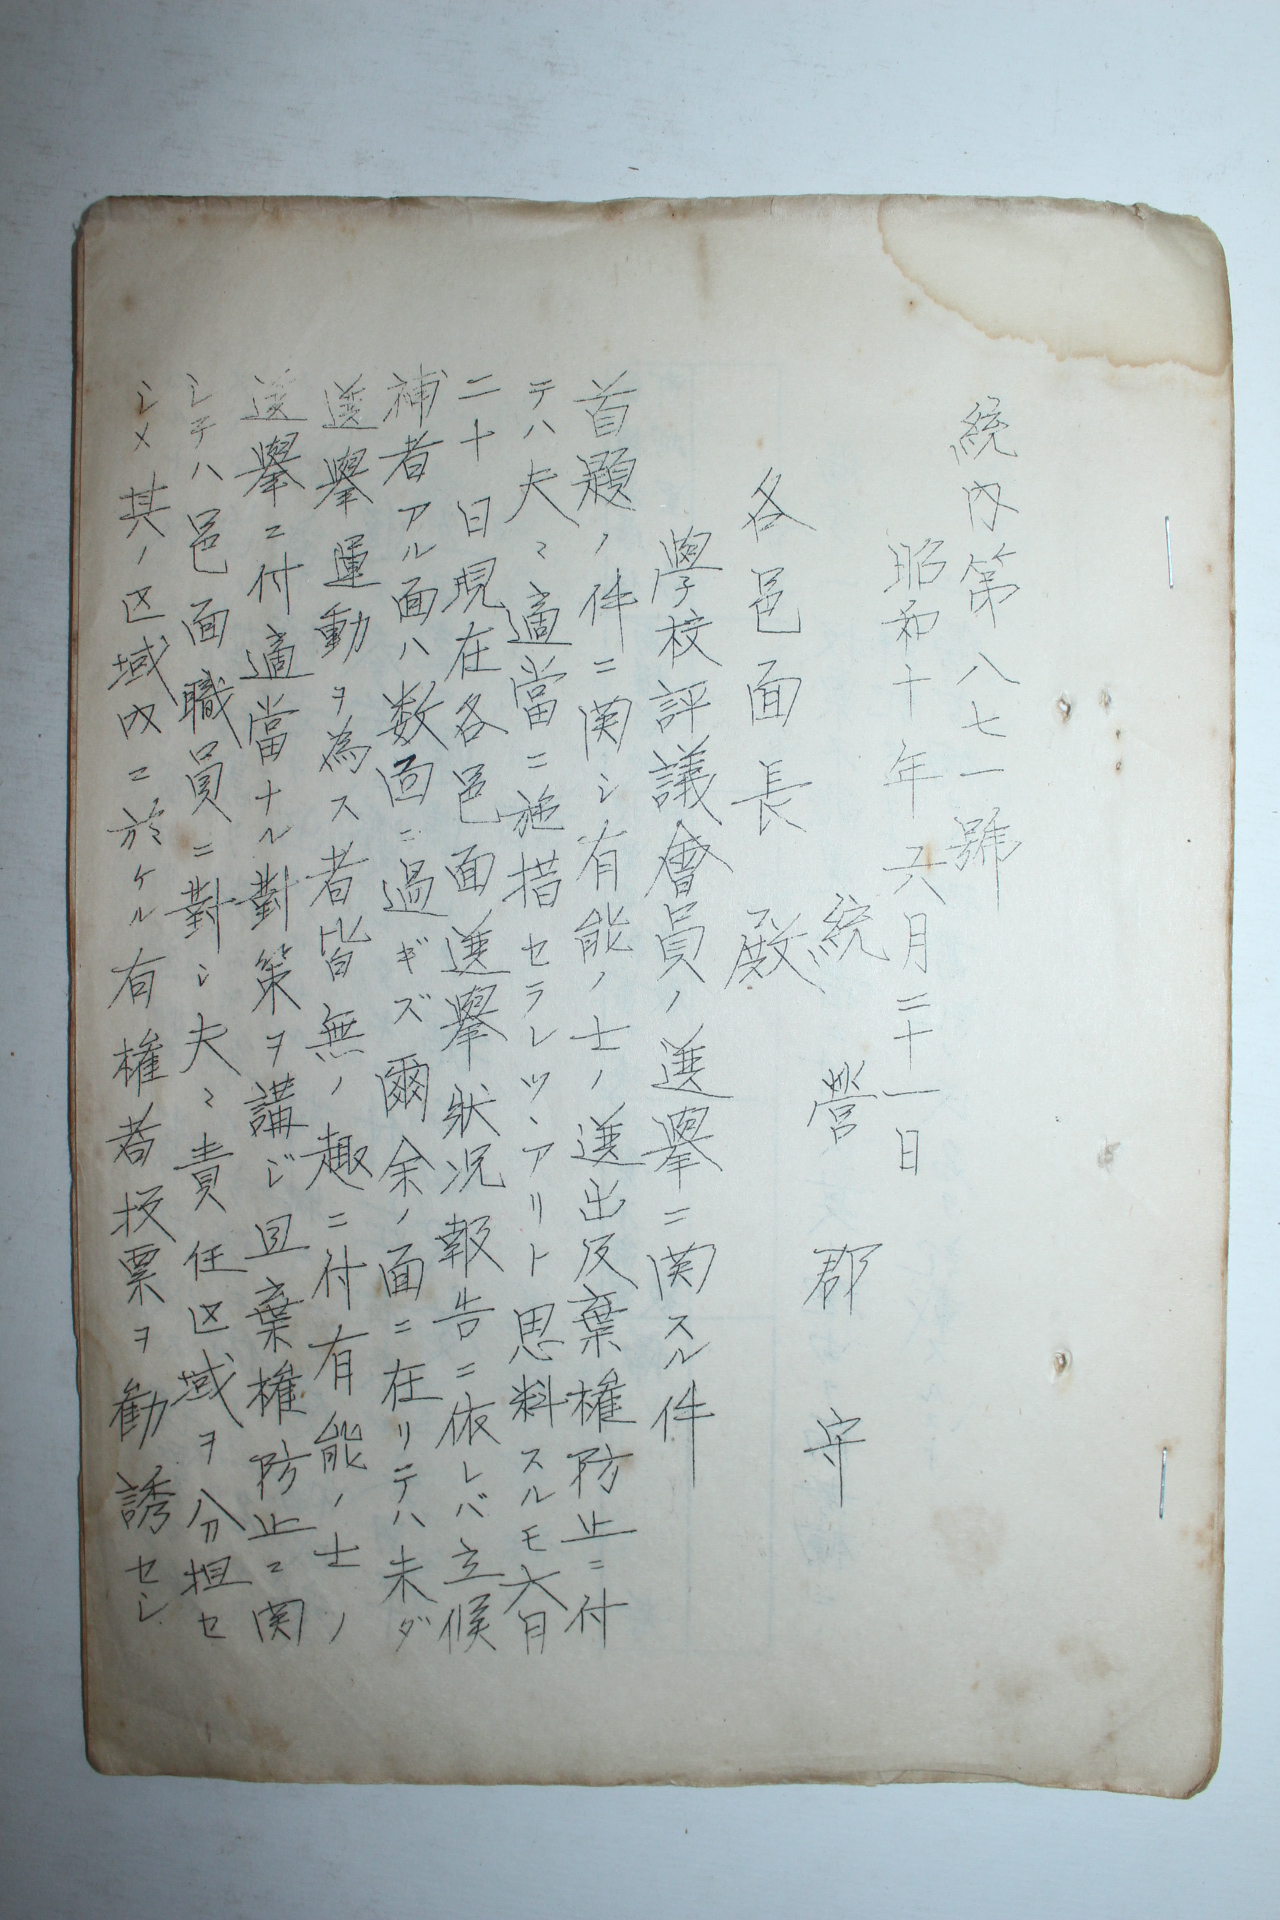 統内第八七一號
昭和十年六月二十一日
統營郡守
各邑面長殿
學校評議會員ノ選擧ニ関スル件
首題ノ件ニ関シ有能ノ士ノ選出反棄權防止ニ付
テハ夫〻適當ニ施措セラレツヽアリト思料スルモ六日
二十日現在各邑面選擧狀况報告ニ依レバ立候
補者アル面ハ数面ニ過ギズ爾余ノ面ニ在リテハ未ダ
選擧運動ヲ為ス者皆無ノ趣ニ付有能ノ士ノ
選擧ニ付適當ナル對策ヲ講ジ且棄權防止ニ関
シテハ邑面職員ニ對シ夫〻責任区域ヲ分担セ
シメ其ノ区域内ニ於ケル有權者投票ヲ勧誘セシ